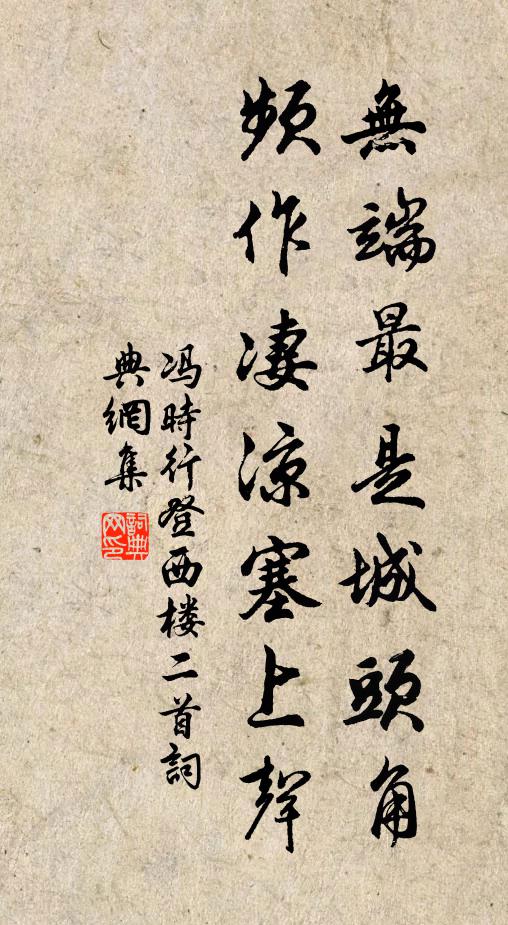 無端最是城頭角
頻作凄涼塞上聲
冯時行登西楼二首詞
典網集
詞典网印